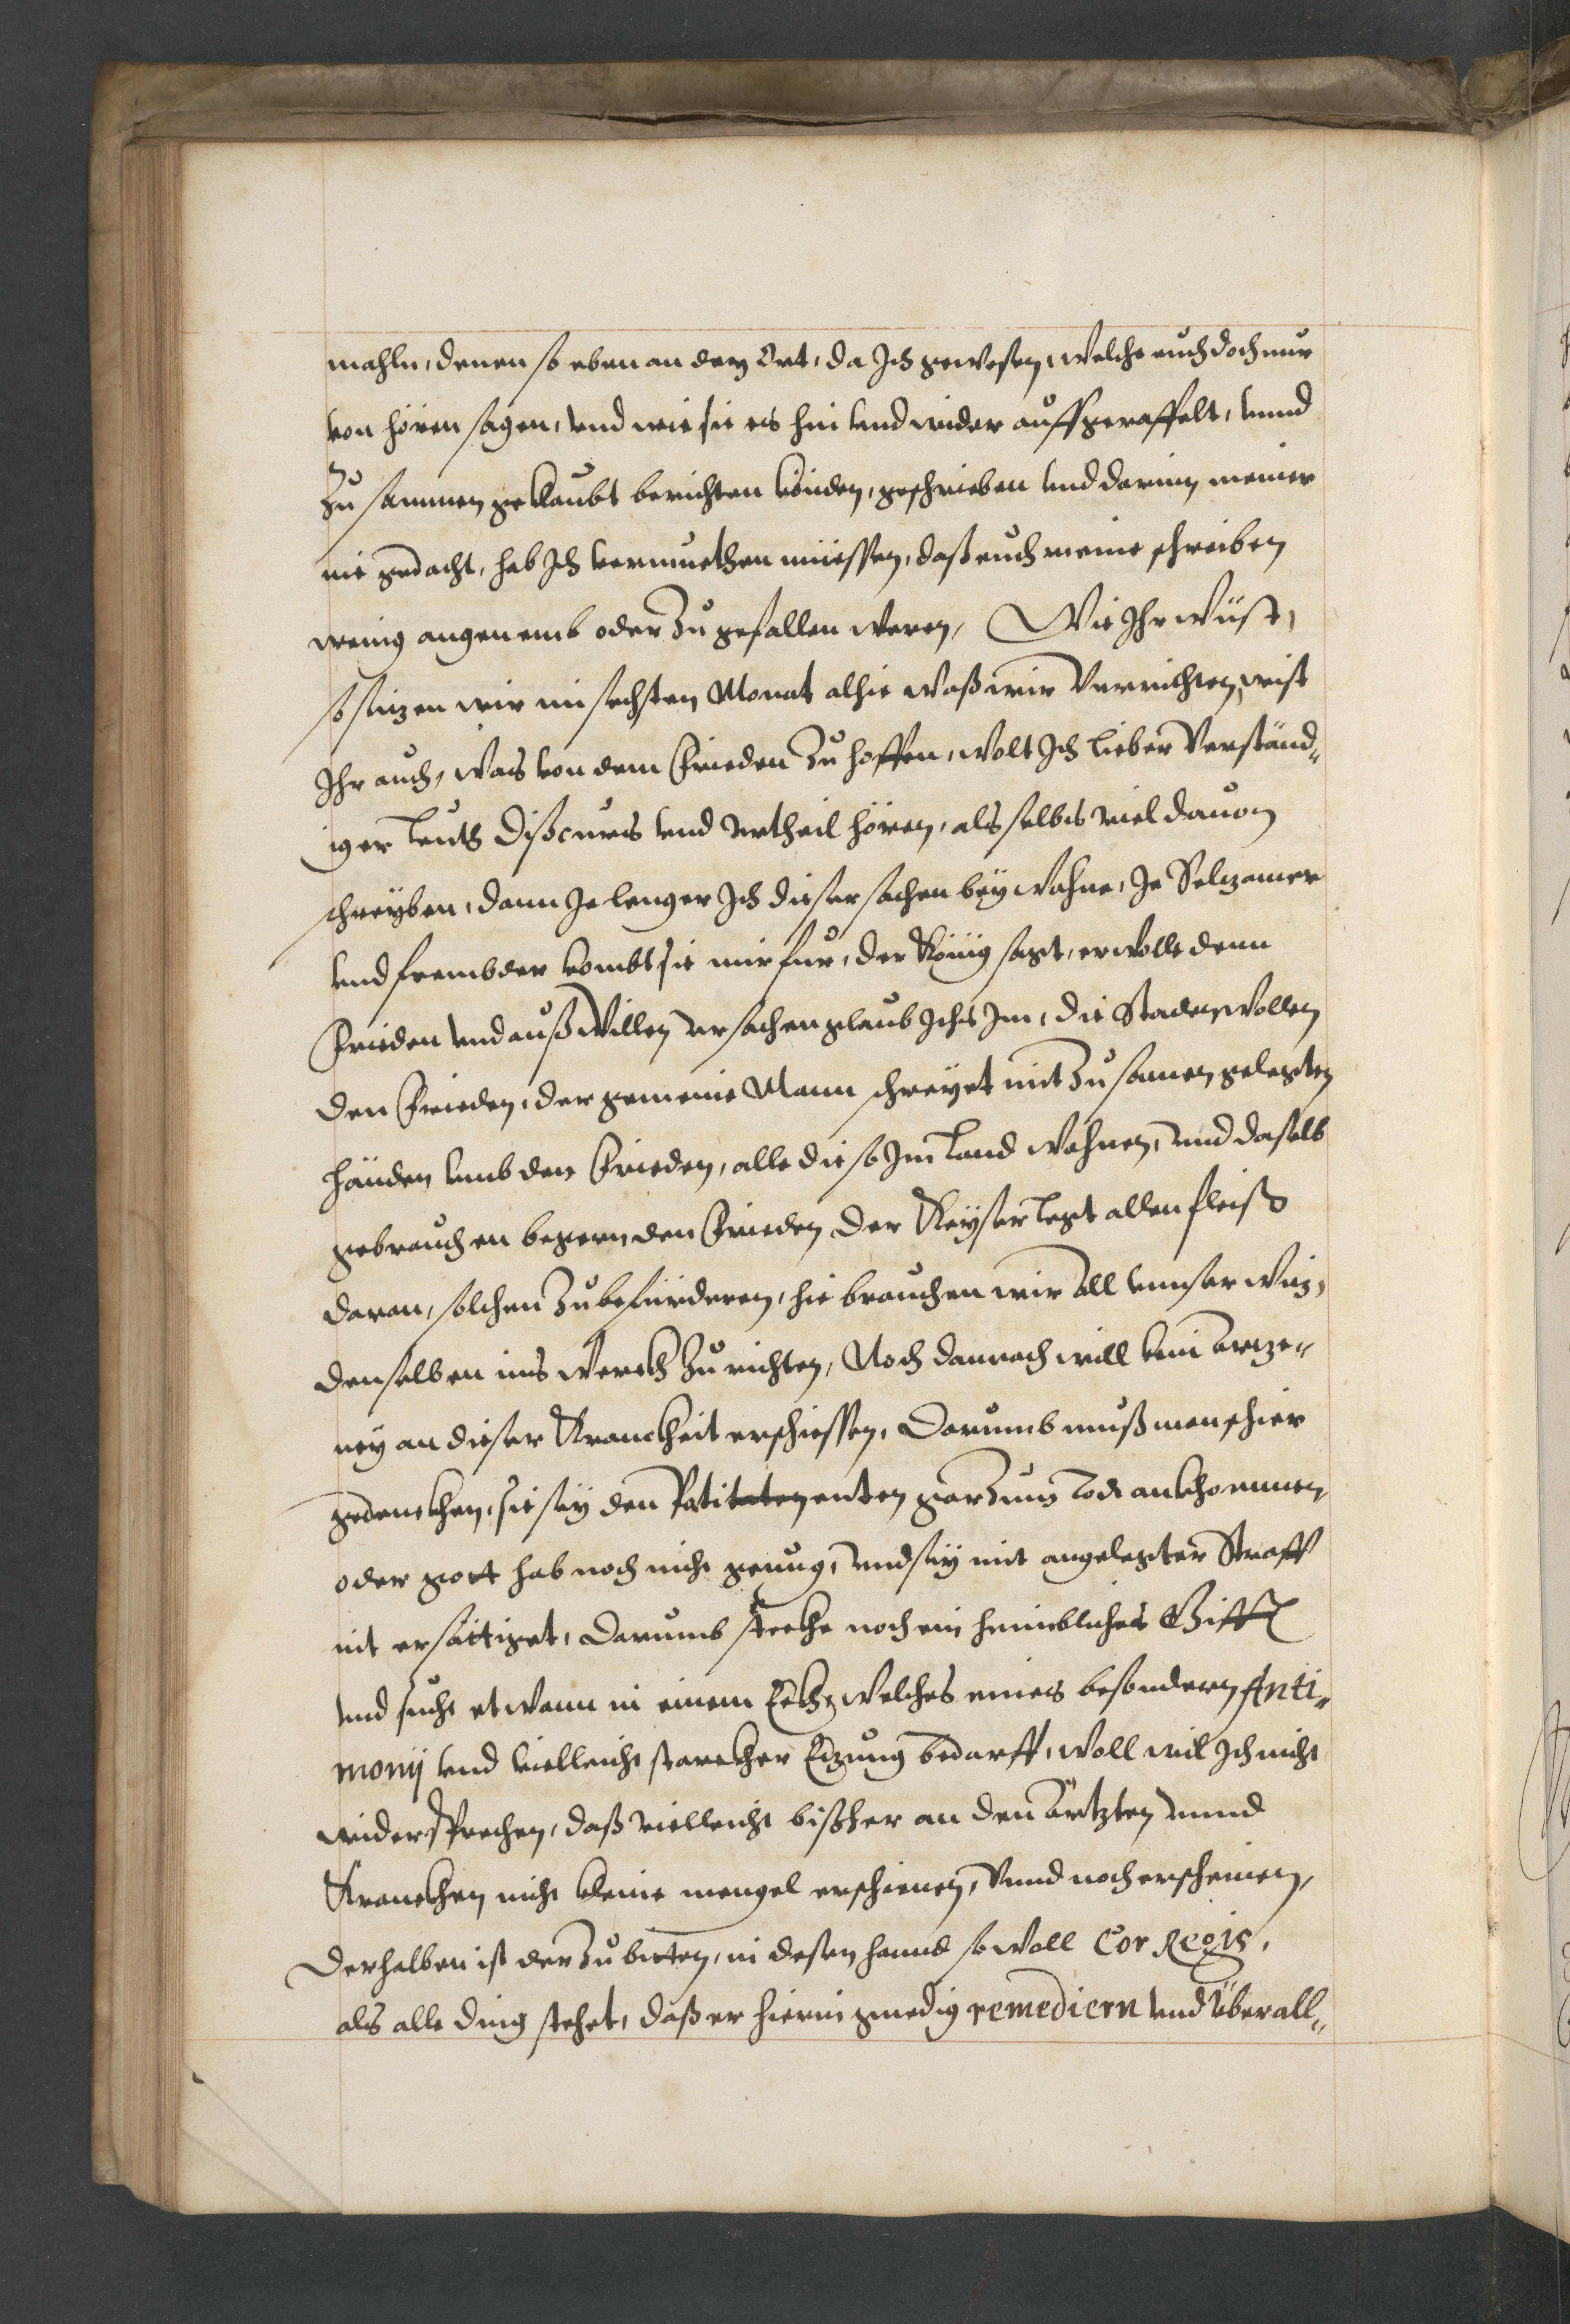 mahln, denen so eben an dem Ort, da Ich gewesen, welche euch doch nur
von hören sagen, vnd wie sie es hin vnd wider auffgeraffelt, vnnd
Zu sammen geklaubt berichten könden, geschrieben vnd darinn meiner
nie gedacht, hab Ich vermuethen müessen, daß euch meine schreiben
wenig angenemb oder Zu gefallen weren, Wie Ihr wüst,
so sitzen wir im sechsten Monat alhie waß wir Verrichten, wist
Ihr auch, was von dem Frieden Zu hoffen, wolt Ich lieber Verständ„
iger leuth Discurs vnd Vrtheil hören, als selbs viel dauon
schreyben, dann Je lenger Ich dieser sachen bey wohne, Je Selzamer
vnd frembder kombt sie mir für, der König sagt, er wolle denn
Frieden vnd auß Villen vrsachen glaub Ichs Im, die Staden wollen
den Frieden, der gemeine Mann schreyet mit Zu samen gelegten
händen vmb den Frieden, alle die so Im land wohnen, vnd daselb
gebrauchen begern den Frieden der Keyser legt allen fleiß
daran, solchen Zu befürderen, hie brauchen wir all vnnser witz,
denselben ins werckh Zu richten, Noch dannoch will kein artze„
ney an dieser Kranckheit erschiessen, Darumb muß man schier
gedenckhen, sie sey den Patitaten enten gar Zum Tode ankhommen,
oder gott hab noch nicht genug, vnd sey mit angelegter Straff
nit ersättiget, Darumb steckhe noch ein heimbliches Gifft
vnd sucht etwann in einem Eckh, welches eines besondern Anti„
monij vnd vielleicht starckher Etzung bedarff, woll wil Ich nicht
widersprechen, daß vielleicht bißher an den ärtzten vnnd
Kranckhen nicht kleine mengel erschienen, Vnnd noch erscheinen,
Derhalben ist der Zu bitten, in desen hannd so woll Cor Regis,
als alle ding stehet, daß er hierin gnedig remediern vnd überall„